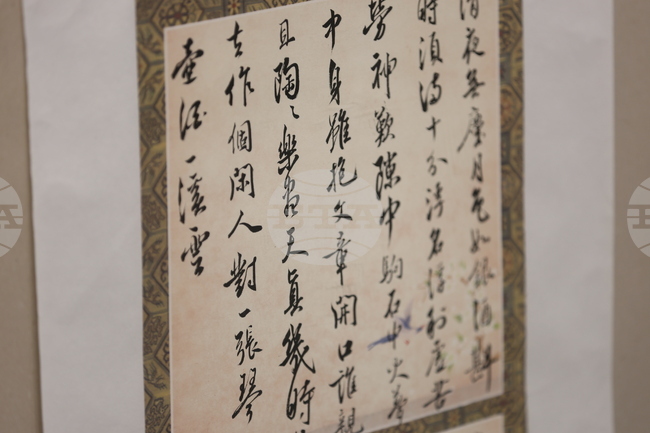 清夜無塵月色如銀酒斟
時須滿十分浮名浮利虛苦
勞神歎隙中駒石中火夢
中身雖抱文章開口誰親
且陶〻樂盡天真幾時
去作個閑人對一張琴
壺酒一溪雲
BTA